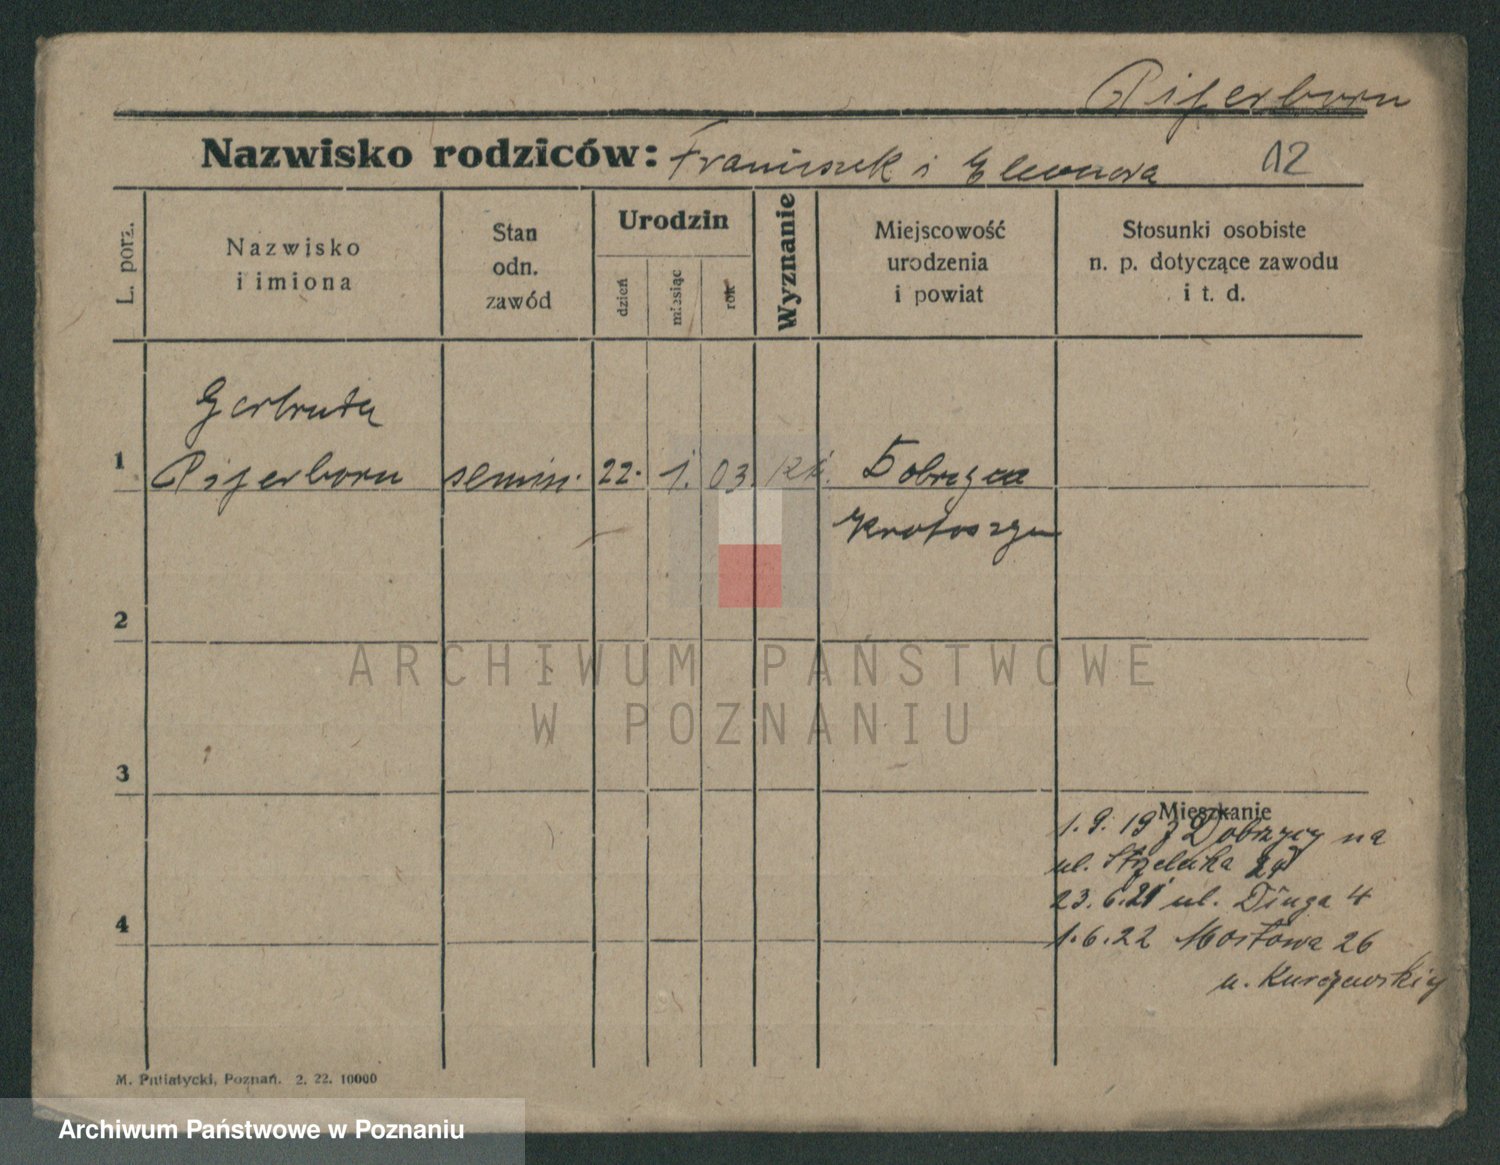 Piferborn
Nazwisko rodziców: Franciszek i Eleonora 12
L. porz.
Nazwisko
i imiona
Stan
odn.
zawód
Urodzin
dzień
miesiąc
rok
Wyznanie
Miejscowość
urodzenia
i powiat
Stosunki osobiste
n. p. dotyczące zawodu
i t. d.
Gertruda
1 Piferborn semin. 22. 1. 03 rk. Dobrzyca
Krotoszyn
2
ARCHIWUM PAŃSTWOWE
W POZNANIU
3
Mieszkanie
1.9.19 z Dobrzycy na
ul. Strzelecka 24
23.6.21 ul. Długa 4
4
1.6.22 Mostowa 26
u. Kurczewskiej
M. Putiatycki, Poznań. 2. 22. 10000
Archiwum Państwowe w Poznaniu